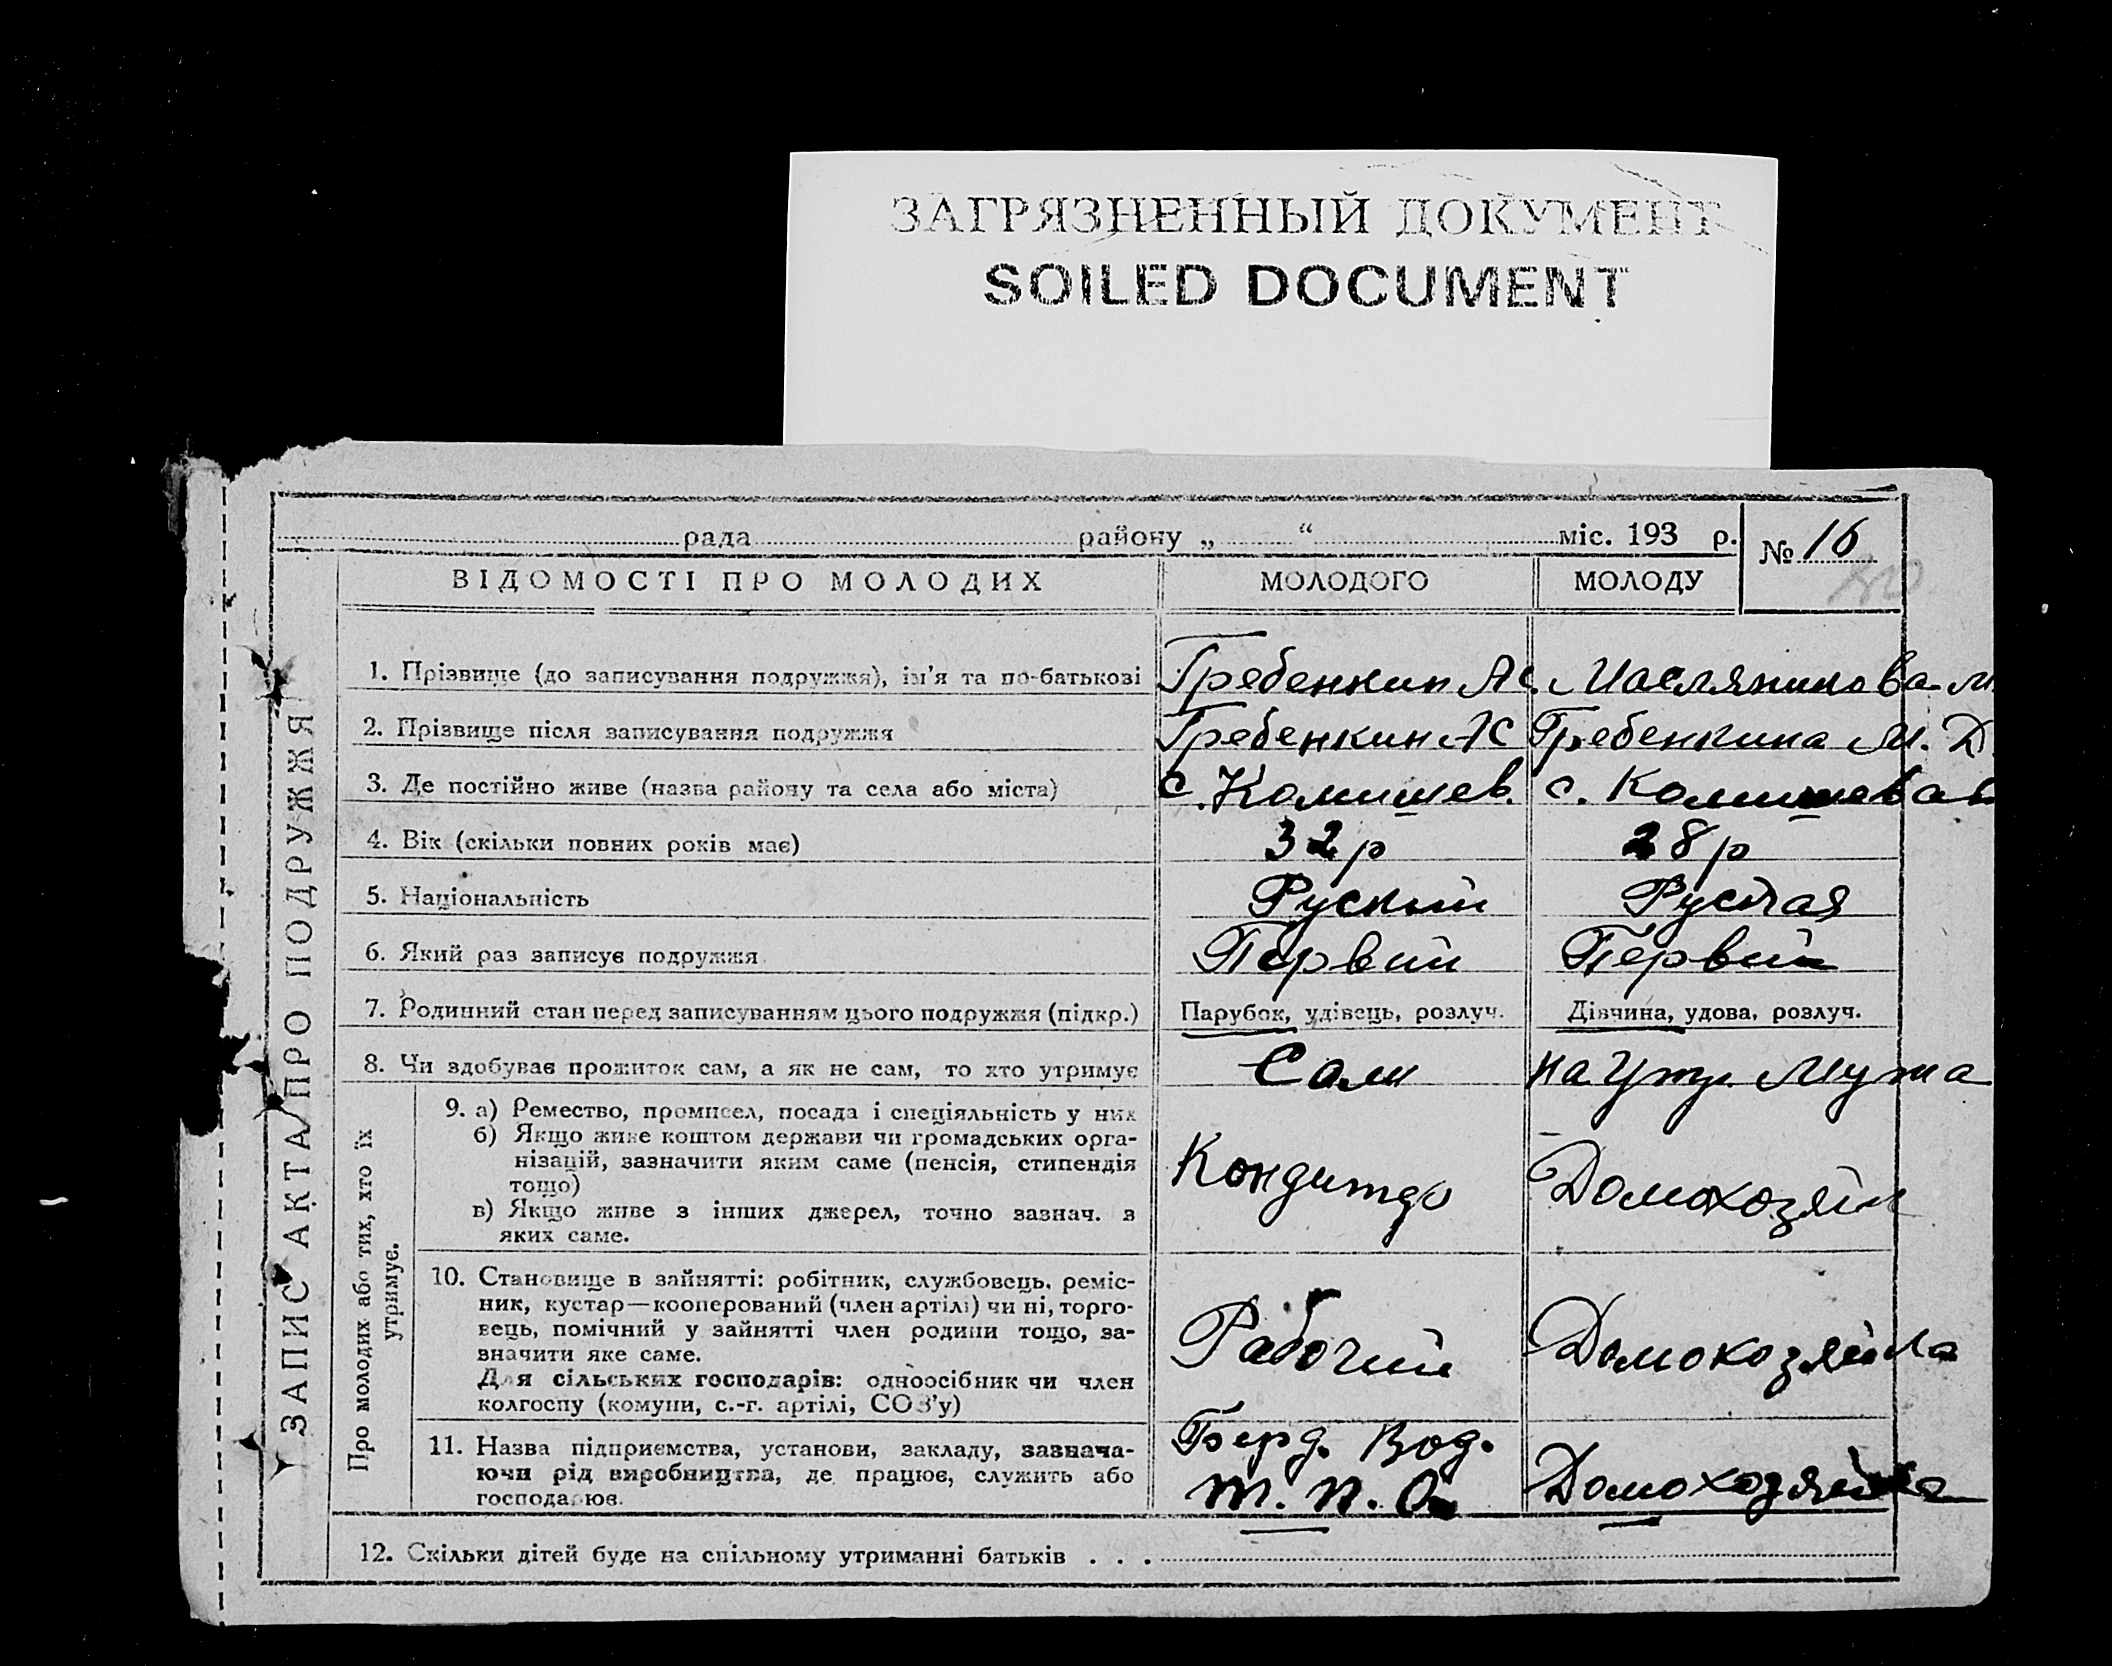 ЗАГРЯЗНЕННЫЙ ДОКУМЕНТ
SOILED DOCUMENT
рада района „ “ міс. 193 р. № 16
ЗАПИС АКТА ПРО ПОДРУЖЖЯ
ВІДОМОСТІ ПРО МОЛОДИХ МОЛОДОГО МОЛОДУ
1. Прізвище (до записування подружжя), ім'я та по-батькові Гребенкин АС. Маслянинова М
2. Прізвище після записування подружжя Гребенкин АС Гребенкина М. Д
3. Де постійно живе (назва району та села або міста) с. Камишев. с. Камишеват
4. Вік (скільки повних років має) 32 р 28 р
5. Національність Руский Руская
6. Який раз записує подружжя Первий Первий
7. Родинний стан перед записуванням цього подружжя (підкр.) Парубок, удівець, розлуч. Дівчина, удова, розлуч.
8. Чи здобуває прожиток сам, а як не сам, то хто утримує Сам на утр. мужа
Про молодих або тих, хто їх
утримує.
9. а) Ремество, промисел, посада і спеціяльність у них
б) Якщо живе коштом держави чи громадських орга-
нізацій, зазначити яким саме (пенсія, стипендія
тощо)
в) Якщо живе з інших джерел, точно зазнач. з
яких саме.
Кондитер Домохозяйк
10. Становище в зайнятті: робітник, службовець, реміс-
ник, кустар—кооперований (член артілі) чи ні, торго-
вець, помічний у зайнятті член родини тощо, за-
значити яке саме.
Для сільських господарів: одноосібник чи член
колгоспу (комуни, с.-г. артілі, СОЗ'у)
Рабочий Домохозяйка
11. Назва підприємства, установи, закладу, зазнача-
ючи рід виробництва, де працює, служить або
господарює.
Берд. Вод.
т. п. О Домохозяйка
12. Скільки дітей буде на спільному утриманні батьків . . .